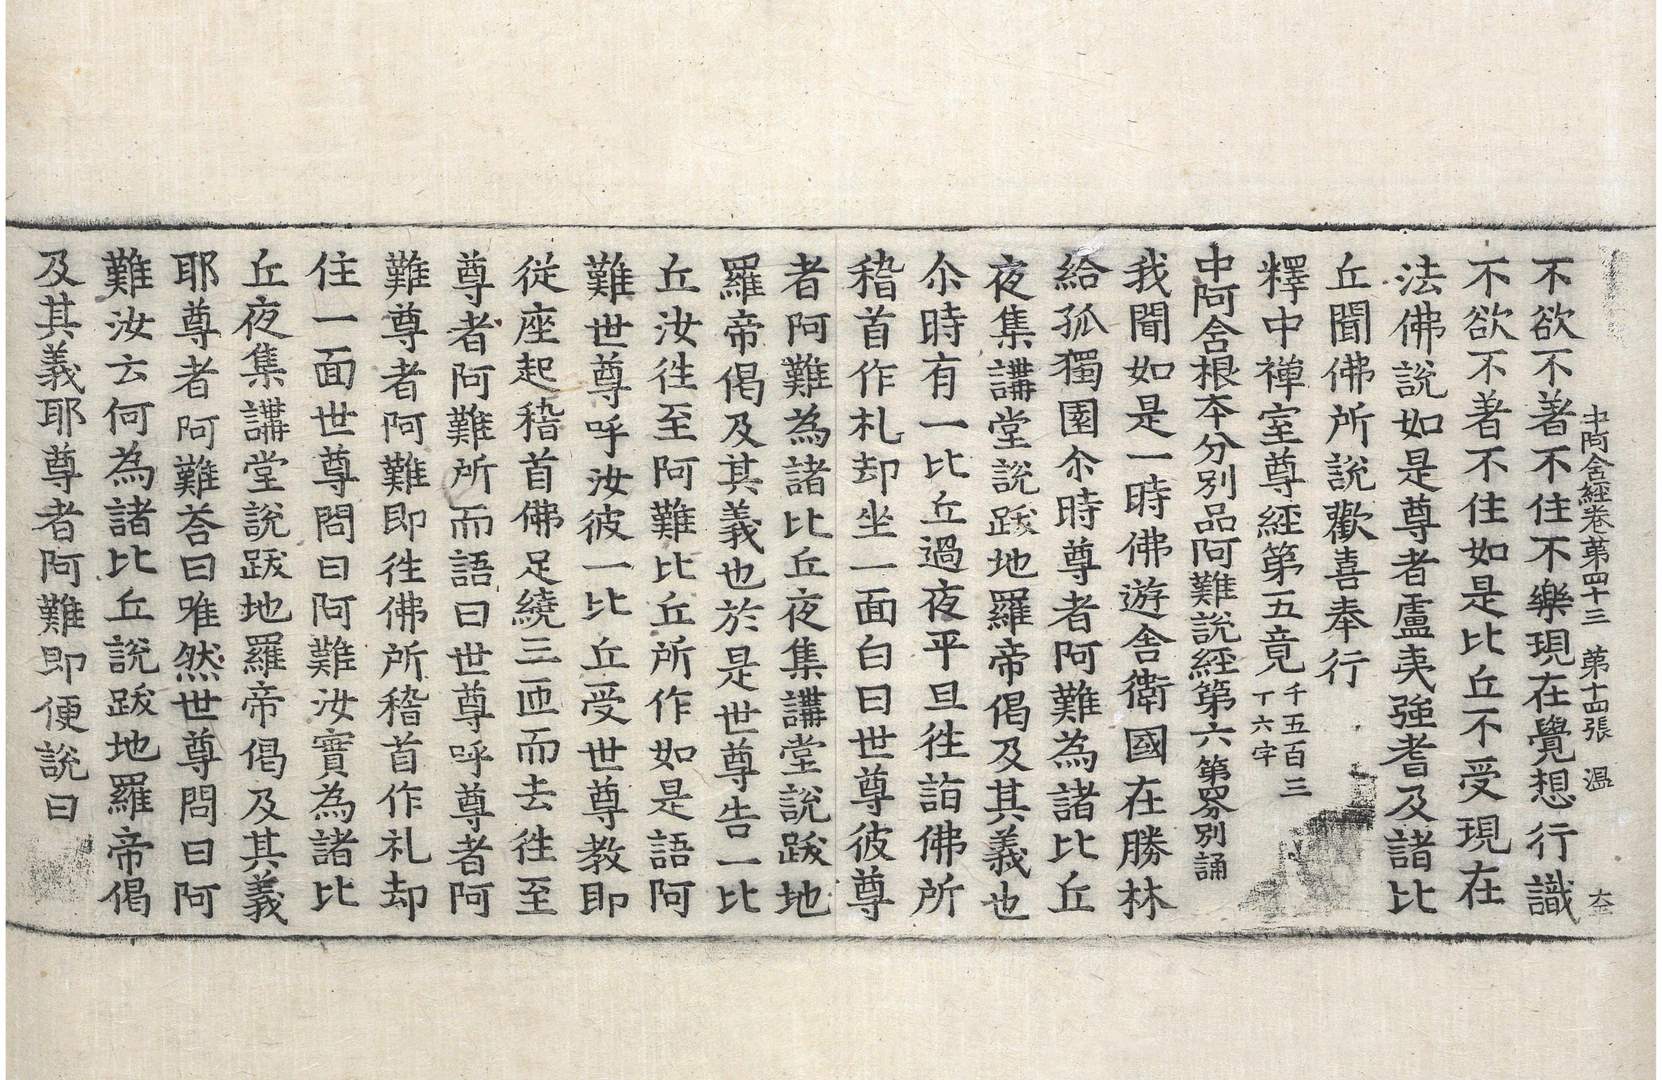 中阿含經卷第四十三 第十四張 温
不欲不著不住不樂現在覺想行識
不欲不著不住如是比丘不受現在
法佛說如是尊者盧夷強耆及諸比
丘聞佛所說歡喜奉行
釋中禅室尊經第五竟 千五百三十六字
中阿含根本分別品阿難說經第六 第四分別誦
我聞如是一時佛遊舍衛國在勝林
給孤獨園尒時尊者阿難為諸比丘
夜集講堂說跋地羅帝偈及其義也
尒時有一比丘過夜平旦徃詣佛所
稽首作礼却坐一面白曰世尊彼尊
者阿難為諸比丘夜集講堂說跋地
羅帝偈及其義也於是世尊告一比
丘汝徃至阿難比丘所作如是語阿
難世尊呼汝彼一比丘受世尊教即
從座起稽首佛足繞三匝而去徃至
尊者阿難所而語曰世尊呼尊者阿
難尊者阿難即徃佛所稽首作礼却
住一面世尊問曰阿難汝實為諸比
丘夜集講堂說跋地羅帝偈及其義
耶尊者阿難荅曰唯然世尊問曰阿
難汝云何為諸比丘說跋地羅帝偈
及其義耶尊者阿難即便說曰